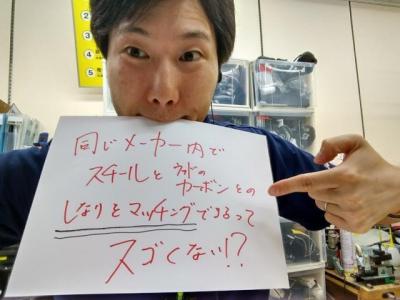 同じメーカー内で
スチールとウッドの
カーボンとの
しなりをマッチングできるって
スゴくない!?
②
③
④
⑤